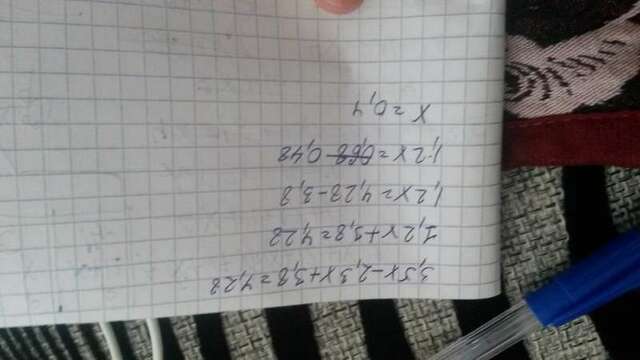 3,5x-2,3x+3,8=4,28
1,2x+3,8=4,28
1,2x=4,28-3,8
1,2x=0,68 0,48
x=0,4